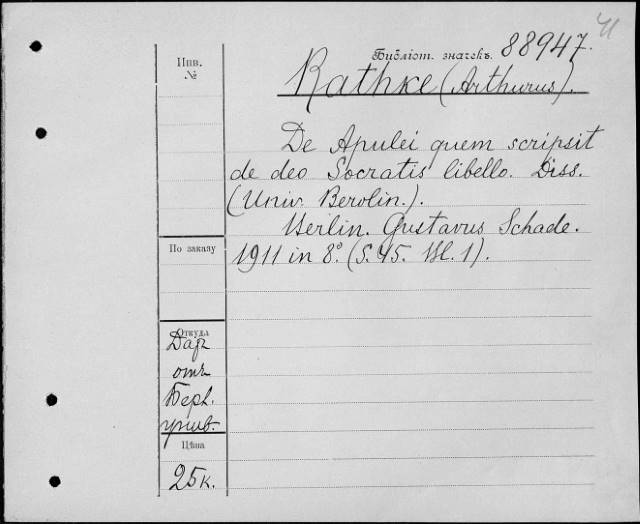 И
Библіот. значекъ. 88947.
Инв.
№
Rathke (Arthurus).
De Apulei quem scripsit
de deo Socratis libello. Diss.
(Univ. Berolin.).
Berlin. Gustavus Schade.
1911 in 8°. (S. 45. Bl. 1).
По заказу
Откуда
Даръ
отъ
Берл.
унив.
Цѣна
25 к.